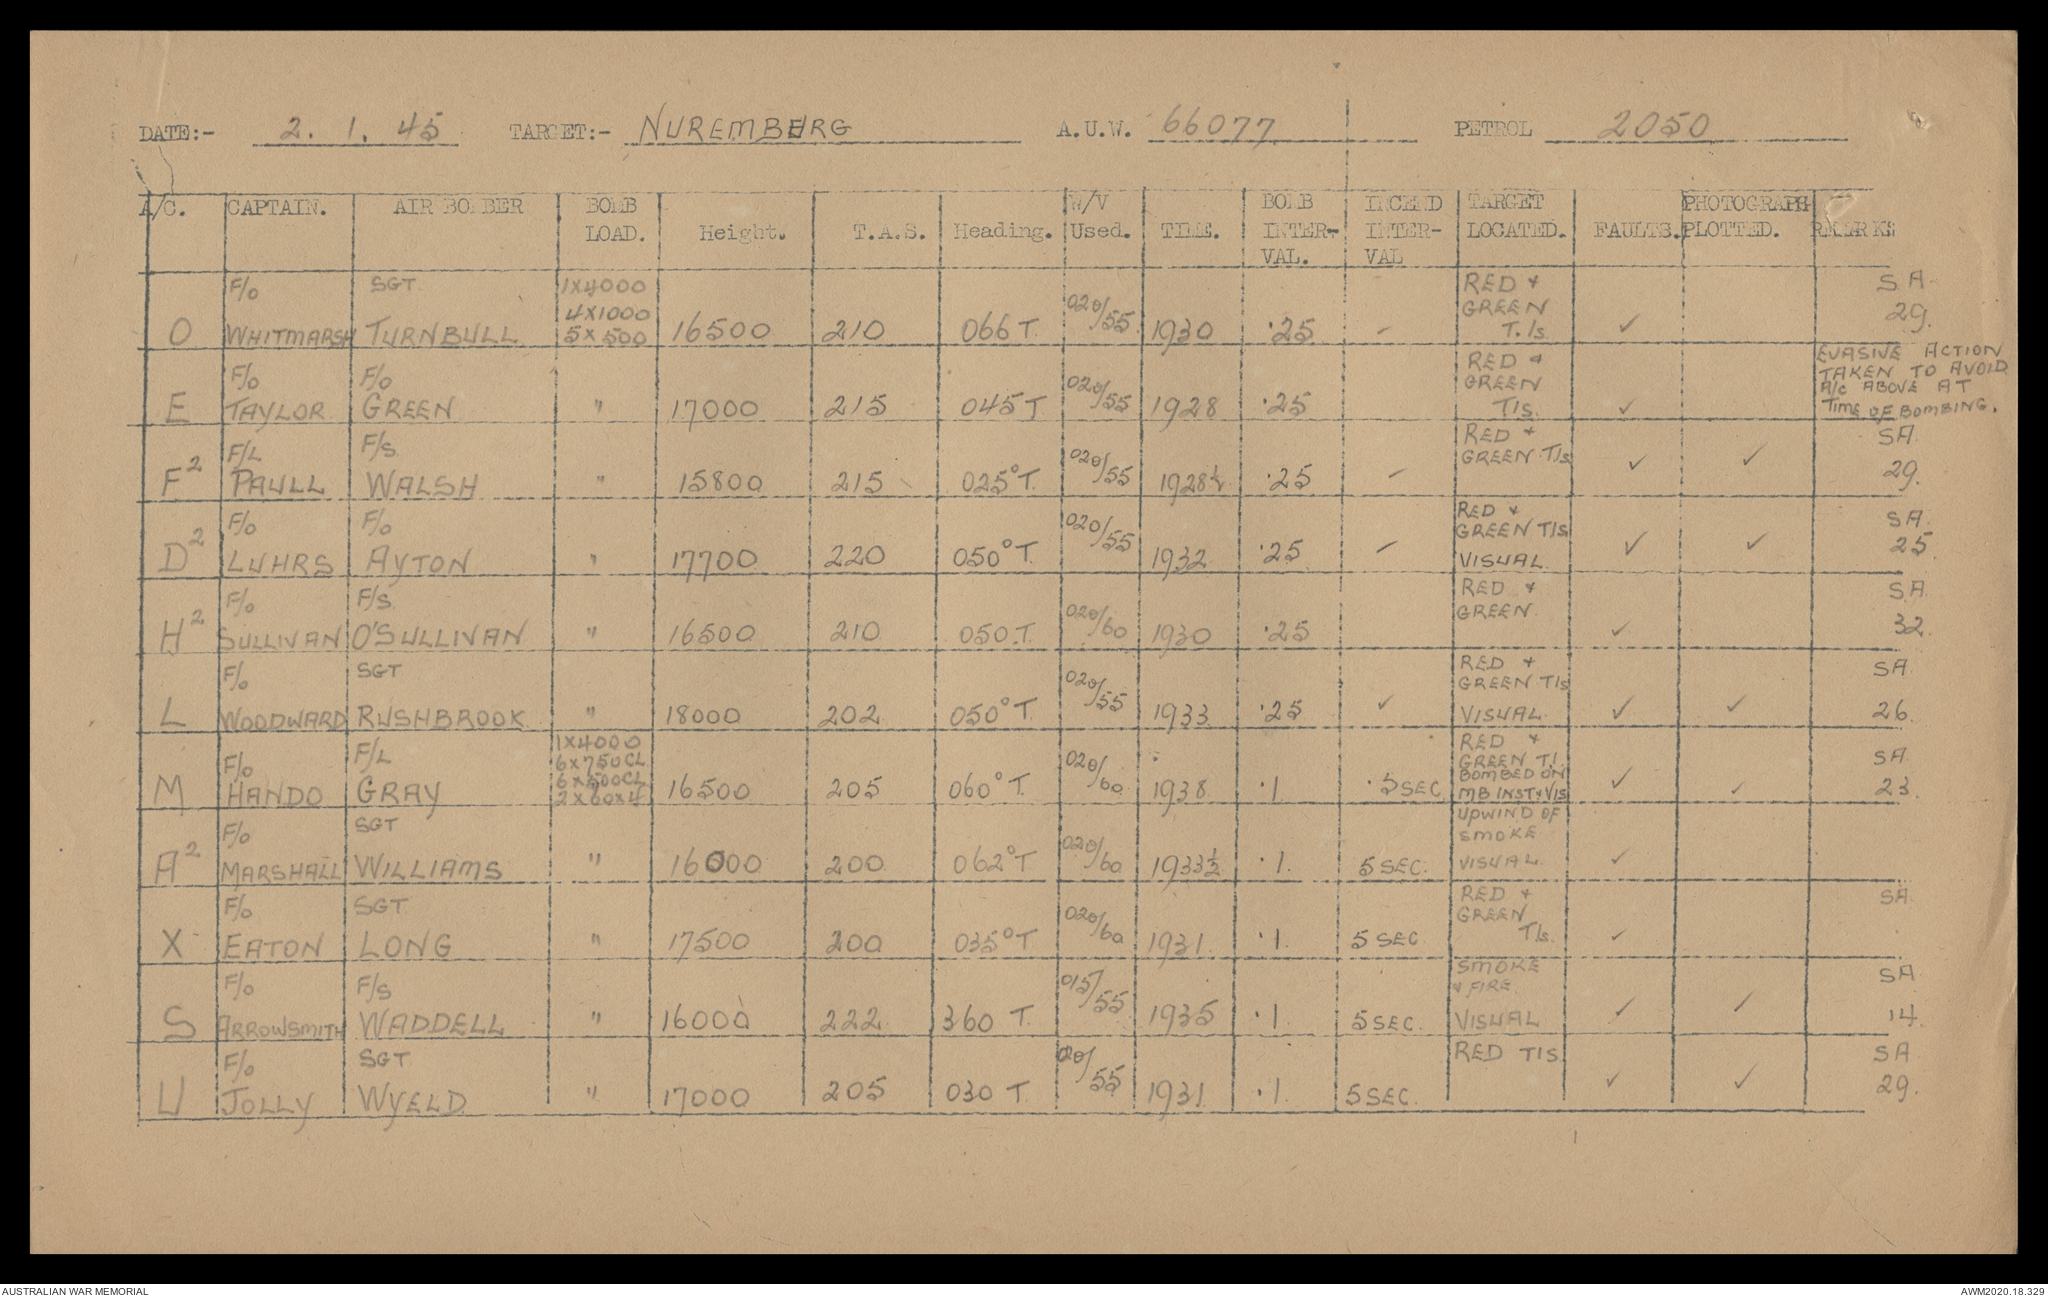 DATE:- 2. 1. 45 TARGET:- NUREMBERG A.U.W. 66077 PETROL 2050
A/C. CAPTAIN. AIR BOMBER BOMB LOAD. Height. T.A.S. Heading. W/V Used. TIME. BOMB INTER- VAL. INCEND INTER- VAL TARGET LOCATED. FAULTS. PHOTOGRAPH PLOTTED. REMARKS
O F/O WHITMARSH SGT TURNBULL 1X4000 4X1000 5X500 16500 210 066 T. 020/55 1930 .25 - RED & GREEN T.Is ✓ S.A. 29.
E F/O TAYLOR F/O GREEN " 17000 215 045 T 020/55 1928 .25 RED & GREEN TIs. ✓ EVASIVE ACTION TAKEN TO AVOID A/C ABOVE AT TIME OF BOMBING.
F² F/L PAULL F/S WALSH " 15800 215 025° T. 020/55 1928½ .25 - RED & GREEN TIs ✓ ✓ SA 29.
D² F/O LUHRS F/O AYTON " 17700 220 050° T. 020/55 1932 .25 - RED & GREEN TIs VISUAL ✓ ✓ SA. 25.
H² F/O SULLIVAN F/S O'SULLIVAN " 16500 210 050.T. 020/60 1930 .25 RED & GREEN. ✓ SA. 32.
L F/O WOODWARD SGT RUSHBROOK " 18000 202 050° T. 020/55 1933 .25 ✓ RED & GREEN TIs VISUAL ✓ ✓ SA. 26.
M F/O HANDO F/L GRAY 1X4000 6X750CL 6X500CL 2X60X4 16500 205 060° T 020/60 1938 .1 .5 SEC RED & GREEN T.I. BOMBED ON MB INST & VIS ✓ ✓ SA. 23.
A² F/O MARSHALL SGT WILLIAMS " 16000 200 062° T 020/60 1933½ .1. 5 SEC. UPWIND OF SMOKE VISUAL ✓
X F/O EATON SGT LONG " 17500 200 035° T 020/60 1931. .1 5 SEC RED & GREEN TIs. ✓ SA.
S F/O ARROWSMITH F/S WADDELL " 16000 222 360 T. 015/55 1935 .1 5 SEC. SMOKE & FIRE VISUAL ✓ ✓ SA 14.
U F/O JOLLY SGT WYELD " 17000 205 030 T. 020/55 1931 .1 5 SEC. RED TIS ✓ ✓ SA 29.
AUSTRALIAN WAR MEMORIAL AWM2020.18.329